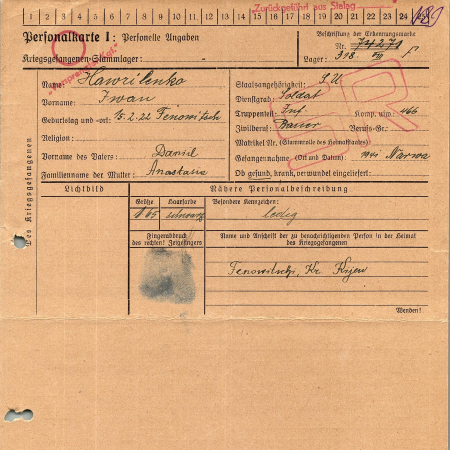 1 2 3 4 5 6 7 8 9 10 11 12 13 14 15 16 17 18 19 20 21 22 23 24 25
Zurückgeführt aus Stalag
Personalkarte I: Personelle Angaben
Kriegsgefangenen-Stammlager:
Beschriftung der Erkennungsmarke
Nr. 74271
Lager: 318 VIII F
Des Kriegsgefangenen
Name: Hawrilenko
Vorname: Iwan
Geburtstag und -ort: 15.2.22 Tenowitsch
Religion:
Vorname des Vaters: Daniel
Familienname der Mutter: Anastasia
Staatsangehörigkeit: S.U.
Dienstgrad: Soldat
Truppenteil: Inf. Komp. usw.: 466
Zivilberuf: Bauer Berufs-Gr.:
Matrikel Nr. (Stammrolle des Heimatstaates)
Gefangennahme (Ort und Datum): 1941 Narwa
Ob gesund, krank, verwundet eingeliefert:
SR
Lichtbild
Nähere Personalbeschreibung
Größe
Haarfarbe
Besondere Kennzeichen:
1,65
schwarz
ledig
Fingerabdruck
des rechten! Zeigefingers
Name und Anschrift der zu benachrichtigenden Person in der Heimat
des Kriegsgefangenen
Tenowitschi, Kr. Kijew
Wenden!